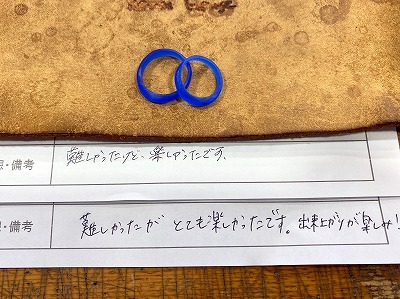 想・備考
難しかったけど、楽しかったです。
想・備考
難しかったが とても楽しかったです。出来上がりが楽しみ!